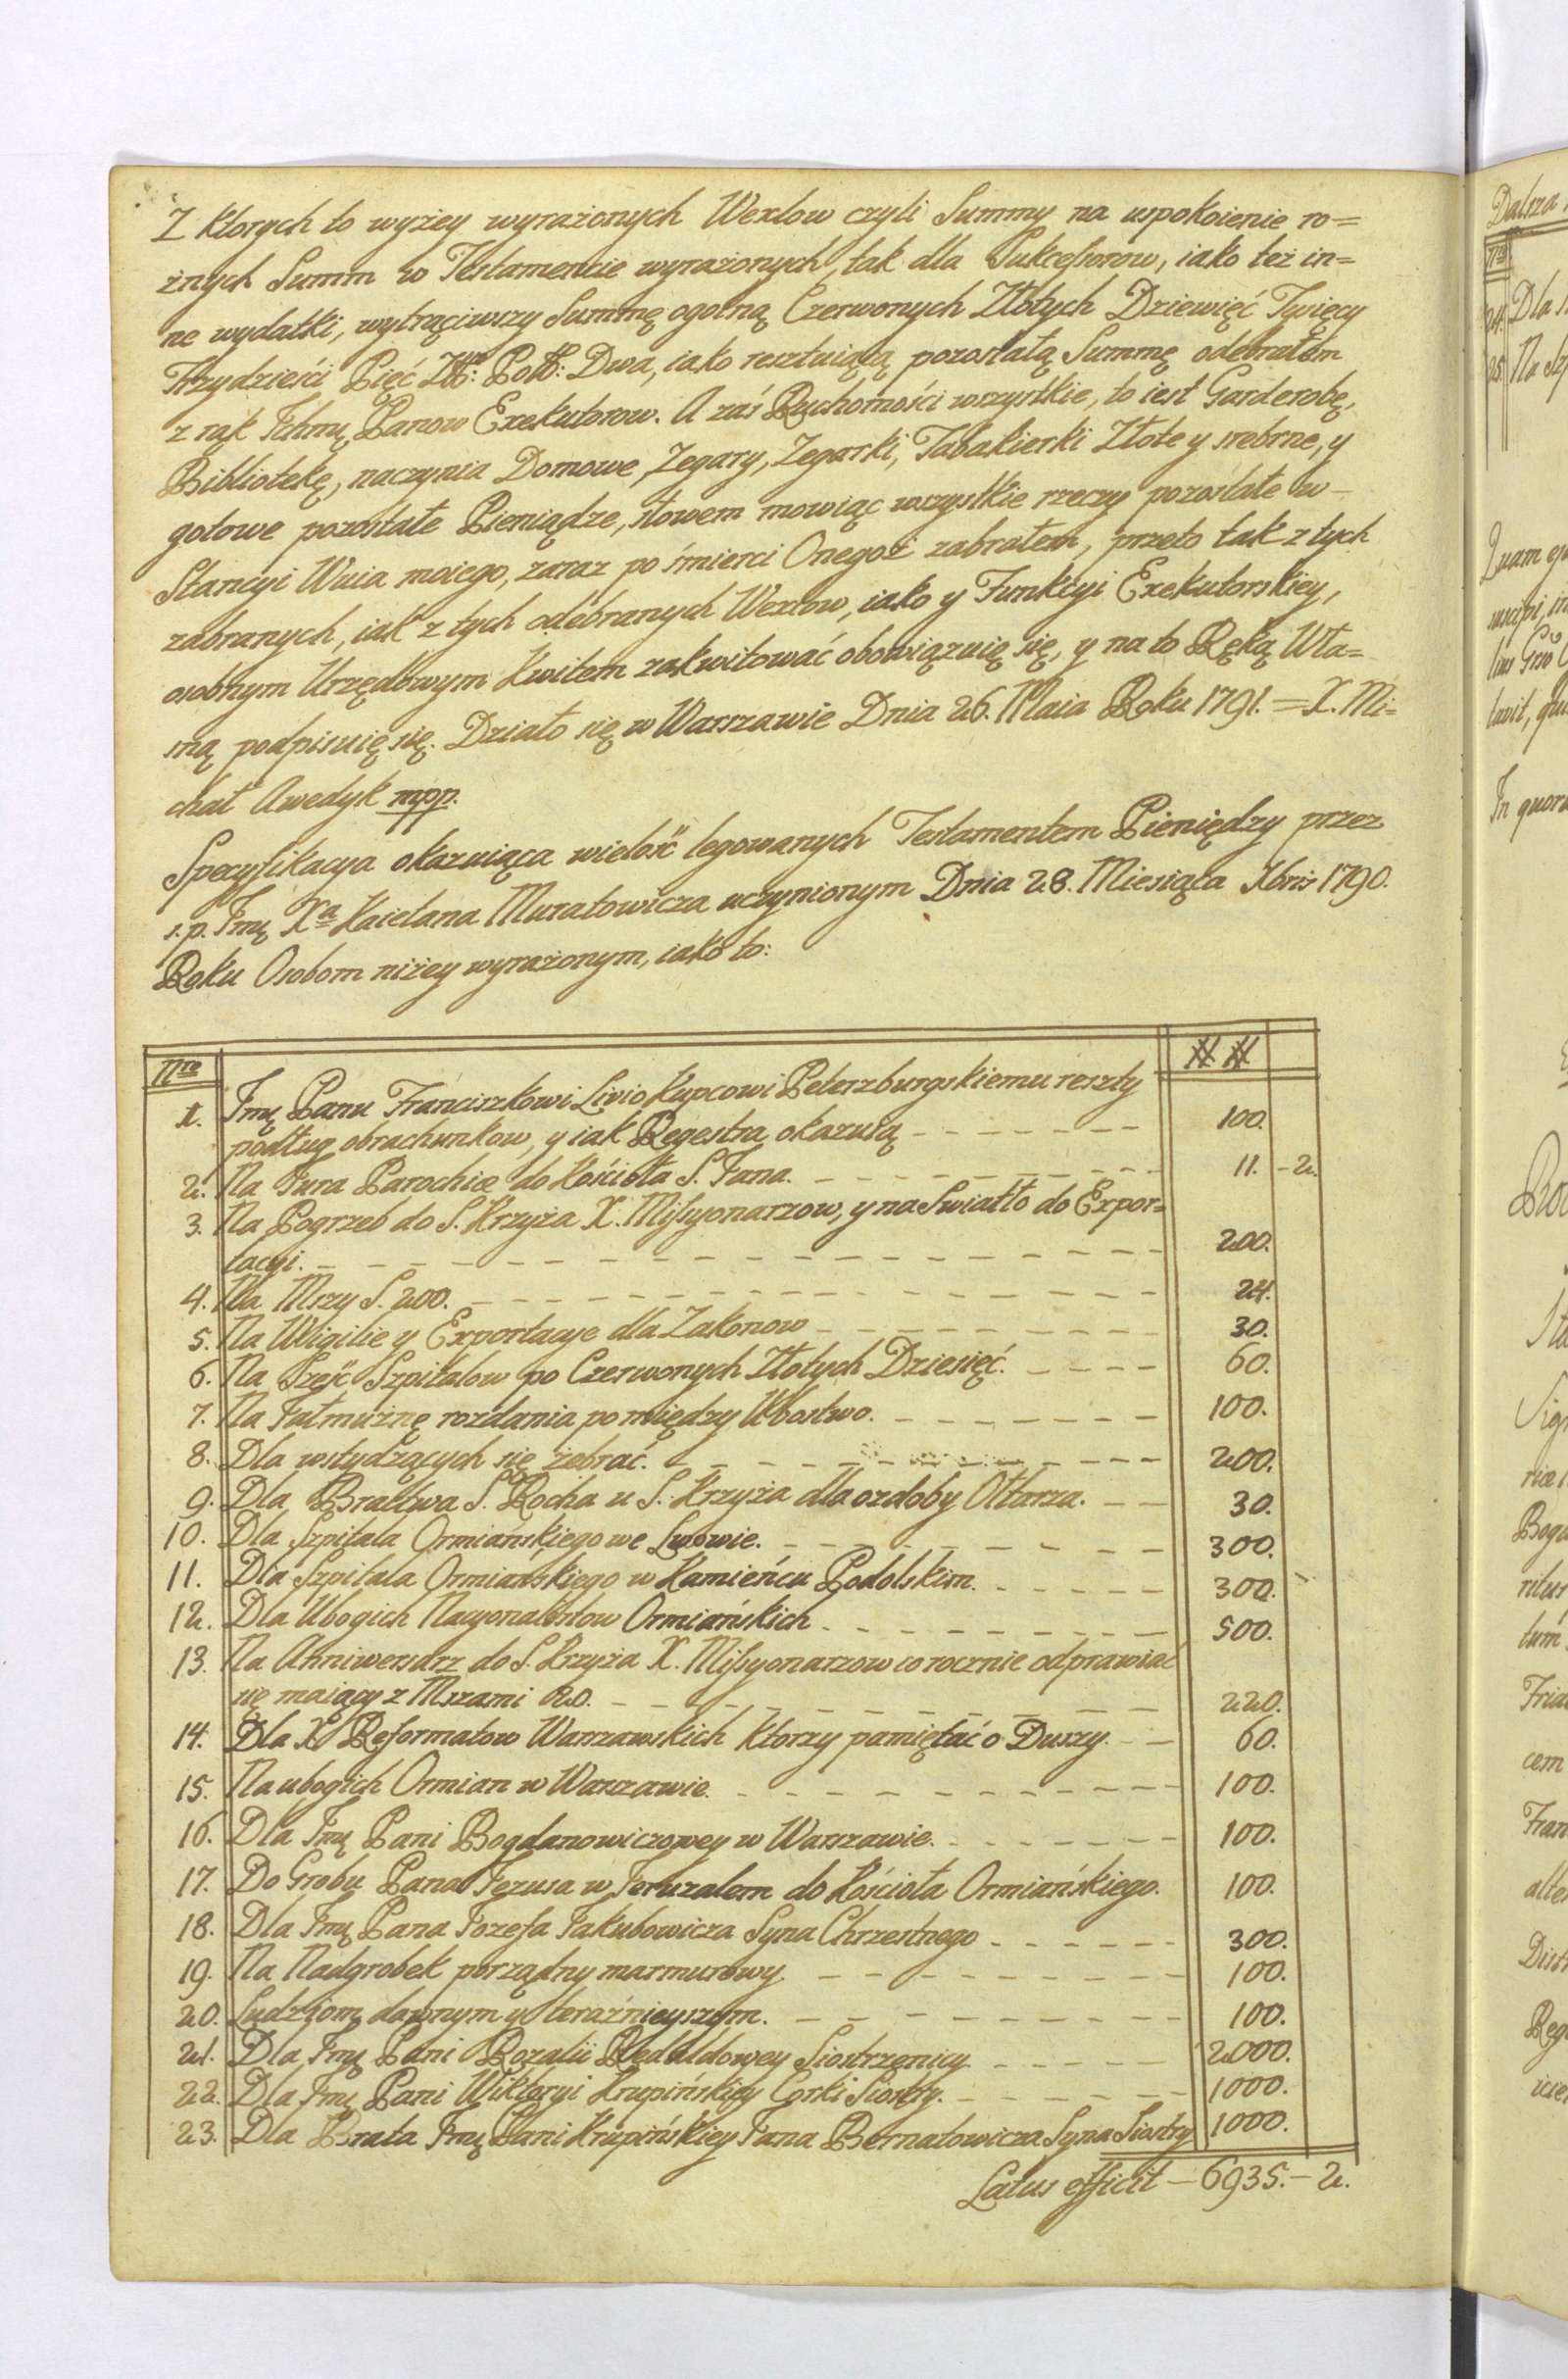 Z ktorych to wyżey wyrażonych Wexlow czyli Summy na uspokoienie ro=
żnych Summ w Testamencie wyrażonych, tak dla Sukcessorow, iako też in=
ne wydatki, wytrąciwszy Summę ogolną Czerwonych Złotych Dziewięć Tysięcy
Trzydzieści Pięć Złł: Poll: Dwa, iako resztuiącą pozostałą Summę odebrałem
z rąk Ichmę Panow Exekutorow. A zaś Ruchomości wszystkie, to iest Garderobę,
Bibliotekę, naczynia Domowe, Zegary, Zegarki, Tabakierki Złote y srebrne, y
gotowe pozostałe Pieniądze, słowem mowiąc wszystkie rzeczy pozostałe w
Stancyi Wuia moiego, zaraz po śmierci Onegoż zabrałem, przeto tak z tych
zabranych, iak z tych odebranych Wexlow, iako y Funkcyi Exekutorskiey,
osobnym Urzędowym Kwitem zakwitować obowiązuię się, y na to Ręką Wła=
sną podpisuię się. Działo się w Warszawie Dnia 26. Maia Roku 1791. = X. Mi=
chał Awedyk mpp.
Specyfikacya okazuiąca wielość legowanych Testamentem Pieniędzy przez
s. p. Jmę Xa Kaietana Muratowicza uczynionym Dnia 28. Miesiąca Xbris 1790.
Roku Osobom niżey wyrażonym, iako to:
Nro # #
1. Jmę Panu Franciszkowi Livio Kupcowi Peterszburgskiemu reszty
podług obrachunkow, y iak Regestra okazuią - - - 100.
2. Na Jura Parochiæ do Kościoła S. Jana. - - - 11. - 2.
3. Na Pogrzeb do S. Krzyża X. Missyonarzow, y na Swiatło do Expor=
tacyi. - - - 200.
4. Na Mszy S. 200. - - - 24.
5. Na Wigilie y Exportacye dla Zakonow - - - 30.
6. Na Sześć Szpitalow po Czerwonych Złotych Dziesięć. - - - 60.
7. Na Jałmużnę rozdania pomiędzy Ubostwo. - - - 100.
8. Dla wstydzących się żebrać. - - - 200.
9. Dla Bractwa S. Rocha u S. Krzyża dla ozdoby Ołtarza. - - 30.
10. Dla Szpitala Ormiańskiego we Lwowie. - - - 300.
11. Dla Szpitala Ormiańskiego w Kamieńcu Podolskim. - - - 300.
12. Dla Ubogich Nacyonalistow Ormiańskich - - - 500.
13. Na Anniwersarz do S. Krzyża X. Missyonarzow corocznie odprawiać
się maiący z Mszami 20. - - - 220.
14. Dla X. Reformatow Warszawskich ktorzy pamiętać o Duszy. - - 60.
15. Na ubogich Ormian w Warszawie. - - - 100.
16. Dla Jmę Pani Bogdanowiczowey w Warszawie. - - - 100.
17. Do Grobu Pana Jezusa w Jeruzalem do Kościoła Ormiańskiego. 100.
18. Dla Jmę Pana Jozefa Jakubowicza Syna Chrzestnego - - - 300.
19. Na Nadgrobek porządny marmurowy. - - - 100.
20. Ludziom dawnym y teraźnieyszym. - - - 100.
21. Dla Jmę Pani Rozalii Siostrzenicy - - - 2000.
22. Dla Jmę Pani Wiktoryi Krupińskiey Corki Siostry. - - - 1000.
23. Dla Brata Jmę Pani Krupińskiey Jana Bernatowicza Syna Siostry 1000.
Latus efficit - 6935. - 2.
Dalsza
Nro
24. Dla
25. Na
Quam
In quor
cem